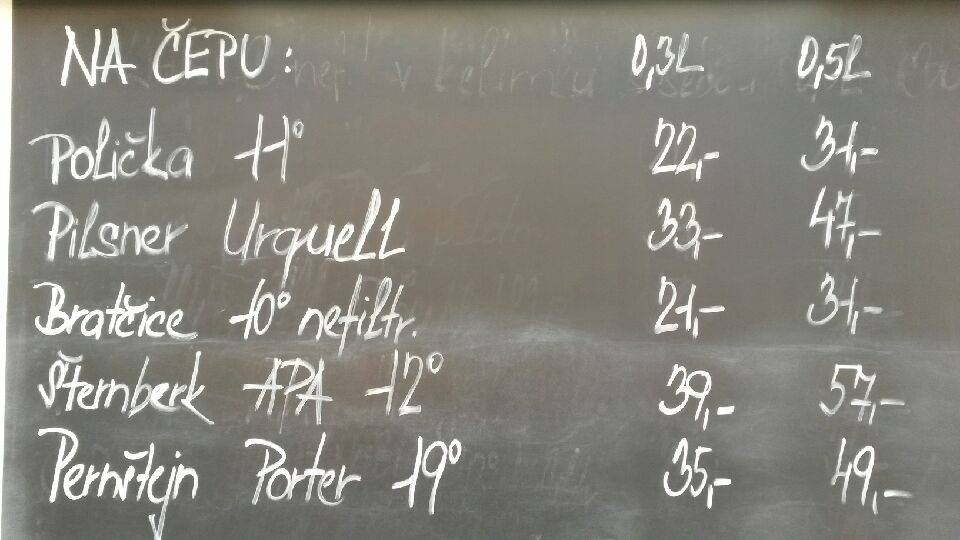 NA ČEPU: 0,3L 0,5L
Polička 11° 22,- 31,-
Pilsner Urquell 33,- 47,-
Bratčice 10° nefiltr. 21,- 31,-
Šternberk APA 12° 39,- 57,-
Pernštejn Porter 19° 35,- 49,-